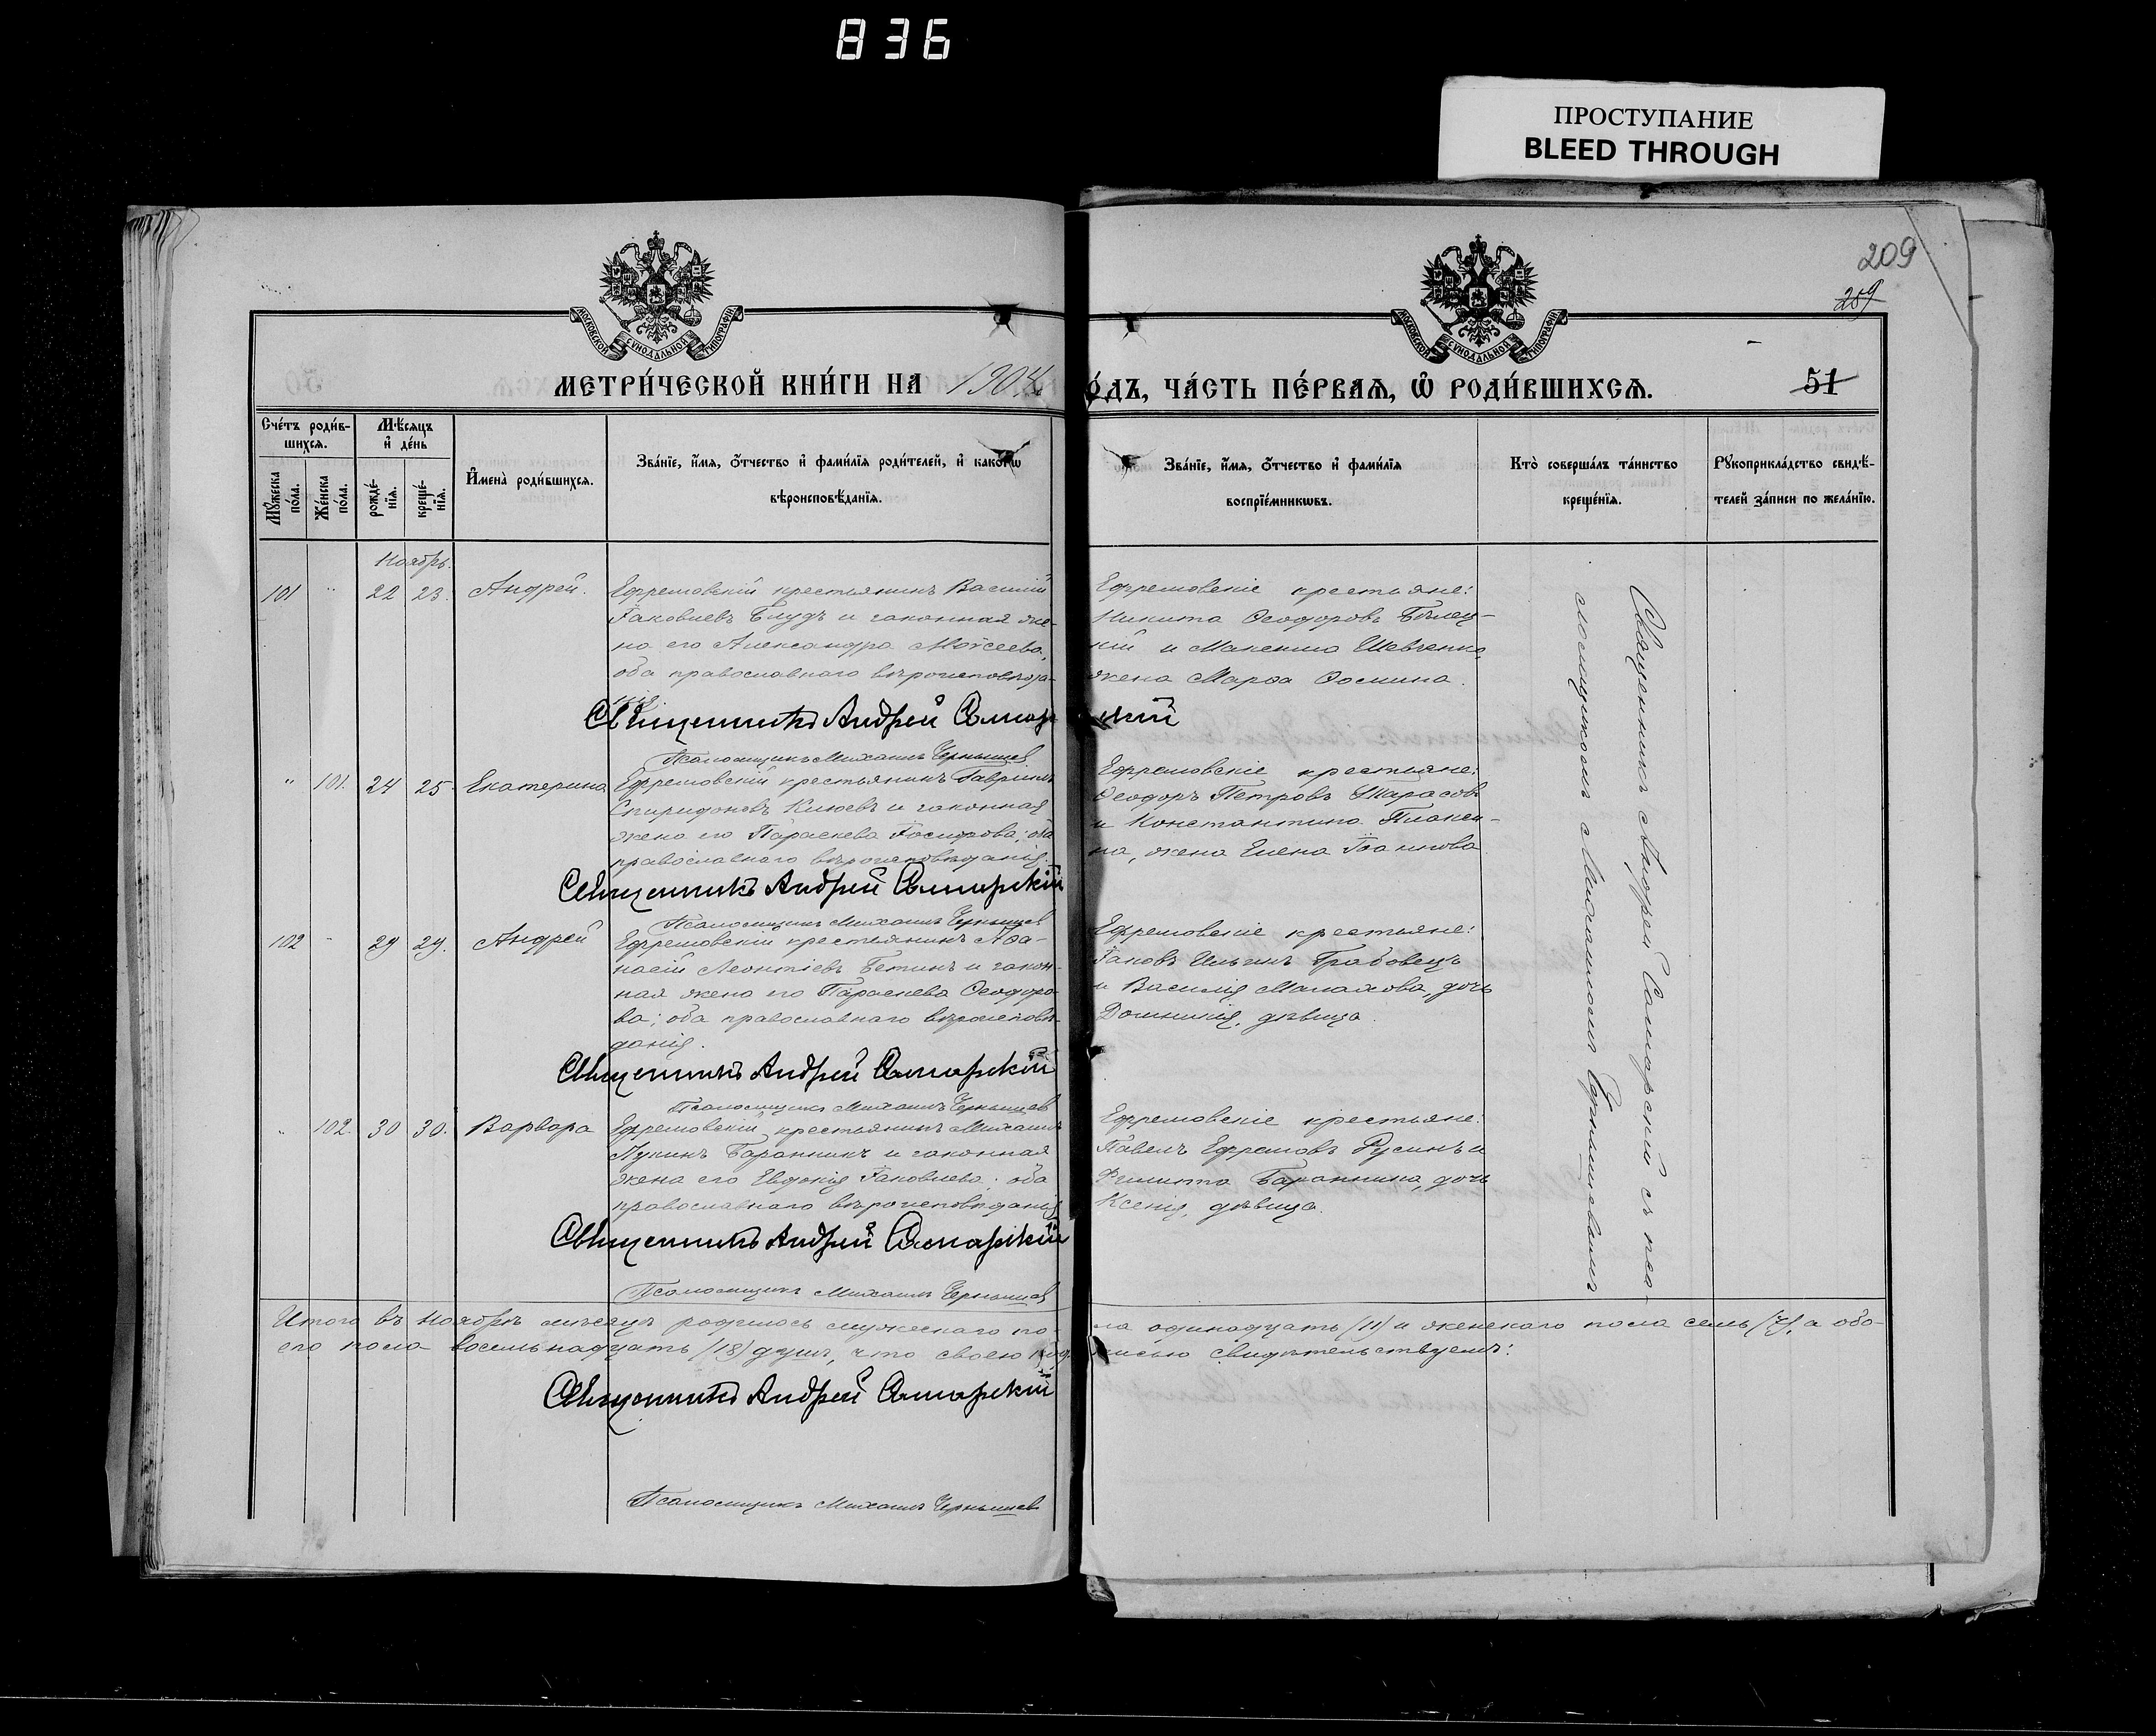 836
ПРОСТУПАНИЕ
BLEED THROUGH
209
259
МОСКОВСКОЙ СѴНОДАЛЬНОЙ ТИПОГРАФІИ
МОСКОВСКОЙ СѴНОДАЛЬНОЙ ТИПОГРАФІИ
МЕТРИ́ЧЕСКОЙ КНИ́ГИ НА 1904
О́ДЪ, ЧА́СТЬ ПЕ́РВАЯ, Ѡ҆ РОДИ́ВШИХСЯ.
51
Сче́тъ роди́в-
шихся.
Мꙋ́жеска по́ла.
Же́нска по́ла.
Мѣ́сяцъ
и҆ де́нь
рожде́-
нїя.
креще́-
нїя.
И҆мена̀ роди́вшихся.
Зва́нїе, и҆́мя, ѻ҆́тчество и҆ фами́лїя роди́телей, и҆ како́гѡ
вѣроисповѣ́данїя.
Зва́нїе, и҆́мя, ѻ҆́тчество и҆ фами́лїя
воспрїе́мникѡвъ.
Кто̀ соверша́лъ та́инство
креще́нїя.
Рꙋкоприкла́дство свидѣ́-
телей за́писи по жела́нїю.
Ноябрь.
101 " 22 23. Андрей.
Ефремовскій крестьянинъ Василій
Іаковлевъ Блудъ и законная же-
на его Александра Моѵсеева,
оба православнаго вѣроисповѣда-
нія.
Священникъ Андрей Самарскій
Псаломщикъ Михаилъ Чернышев
Ефремовскіе крестьяне:
Никита Ѳеодоровъ Бѣлец-
кій и Максима Шевченко,
жена Марѳа Ѳомина.
" 101. 24 25. Екатерина
Ефремовскій крестьянинъ Гавріилъ
Спиридоновъ Клюевъ и законная
жена его Параскева Іосифова, оба
православнаго вѣроисповѣданія.
Священникъ Андрей Самарскій
Псаломщикъ Михаилъ Чернышев
Ефремовскіе крестьяне:
Ѳеодоръ Петровъ Тарасовъ
и Константина Плакси-
на, жена Елена Іоаннова
102 " 29 29. Андрей
Ефремовскій крестьянинъ Аѳа-
насій Леонтіевъ Бетинъ и закон-
ная жена его Параскева Ѳеодоро-
ва; оба православнаго вѣроисповѣ-
данія.
Священникъ Андрей Самарскій
Псаломщикъ Михаилъ Чернышев
Ефремовскіе крестьяне:
Іаковъ Ильинъ Грабовецъ
и Василія Малахова, дочь
Домникія, дѣвица.
" 102. 30 30. Варвара
Ефремовскій крестьянинъ Михаилъ
Лукинъ Бараннинъ и законная
жена его Евдокія Іаковлева; оба
православнаго вѣроисповѣданія
Священникъ Андрей Самарскій
Псаломщикъ Михаилъ Чернышев
Ефремовскіе крестьяне:
Павелъ Ефремовъ Русинъ и
Филиппа Бараннина, дочь
Ксенія, дѣвица.
Священникъ Андрей Самарскій съ пса-
ломщикомъ Михаиломъ Чернышевымъ
Итого въ Ноябрѣ мѣсяцѣ родилось мужескаго по-
ла одинадцать (11) и женскаго пола семь (7), а обо-
его пола восемьнадцать (18) душъ, что своею под-
писью свидѣтельствуемъ:
Священникъ Андрей Самарскій
Псаломщикъ Михаилъ Чернышев